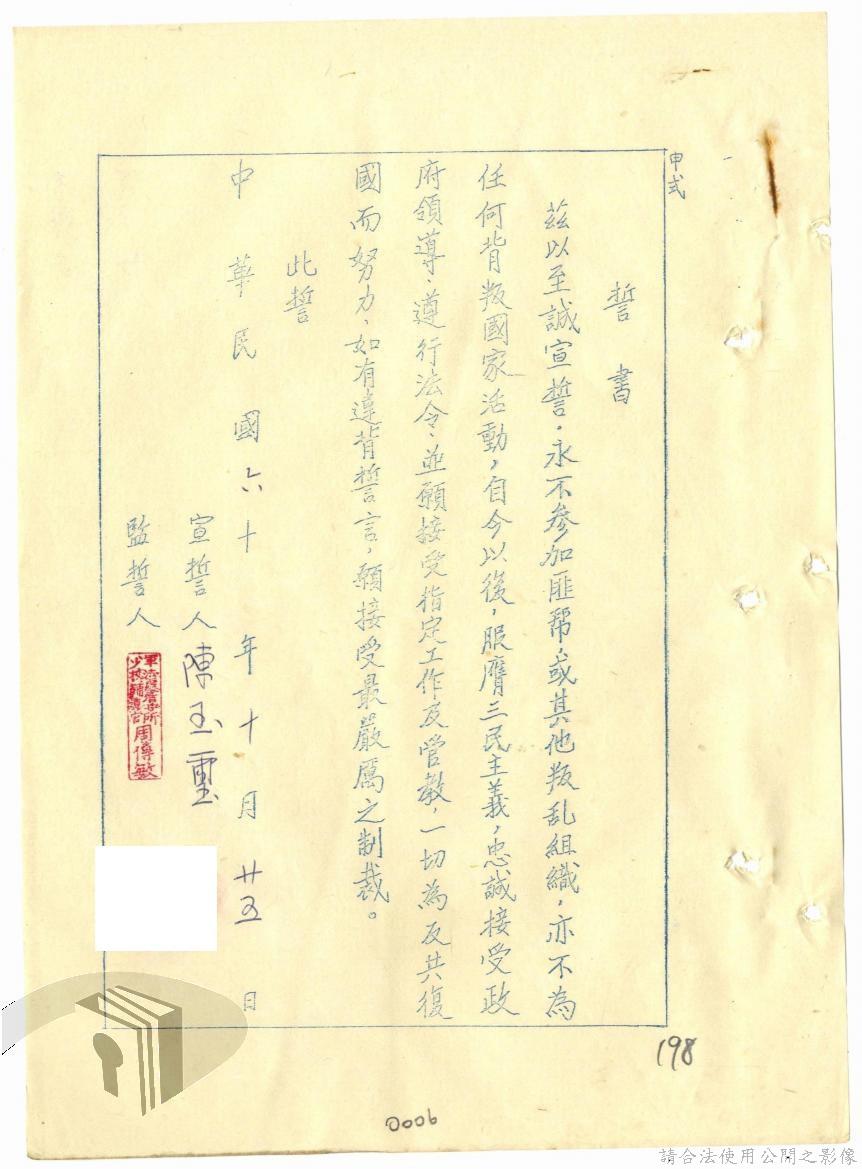 甲式
誓書
茲以至誠宣誓。永不參加匪幫、或其他叛乱組織，亦不為
任何背叛國家活動，自今以後，服膺三民主義，忠誠接受政
府領導、遵行法令、並願接受指定工作及管教，一切為反共復
國而努力、如有違背誓言，願接受最嚴厲之制裁。
此誓
中華民國六十年十月廿五日
宣誓人陳玉璽
監誓人
周傳敏
198
0006
請合法使用公開之影像